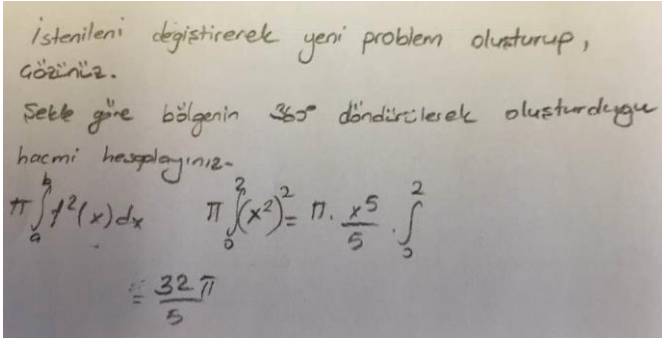 İstenileni değiştirerek yeni problem oluşturup,
çözünüz.
Şekle göre bölgenin 360° döndürülerek oluşturduğu
hacmi hesaplayınız.
π∫_a^b f²(x)dx π∫_0^2 (x²)² = π. x⁵/5 . ∫_0^2
= 32π/5